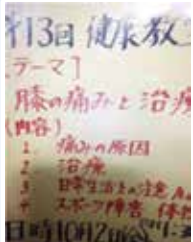 第13回 健康教
[テーマ]
膝の痛みと治療
(内容)
1. 痛みの原因
2 治療
3 日常生活上の注意
4 スポーツ障害 体操
日時10月2日